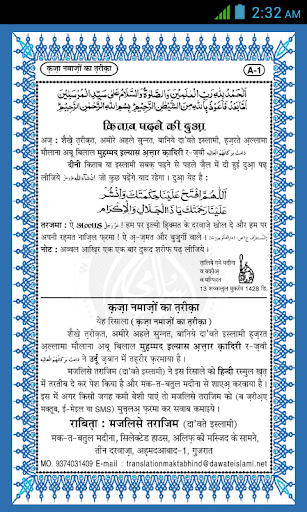 2:32 AM
क़ज़ा नमाज़ों का त़रीक़ा
A-1
اَلْحَمْدُ لِلّٰهِ رَبِّ الْعٰلَمِيْنَ وَالصَّلٰوةُ وَالسَّلَامُ عَلٰى سَيِّدِ الْمُرْسَلِيْنَ
اَمَّا بَعْدُ فَاَعُوْذُ بِاللّٰهِ مِنَ الشَّيْطٰنِ الرَّجِيْمِ بِسْمِ اللّٰهِ الرَّحْمٰنِ الرَّحِيْمِ
किताब पढ़ने की दुआ
अज़ : शैख़े त़रीक़त, अमीरे अहले सुन्नत, बानिये दा'वते इस्लामी, ह़ज़रते अ़ल्लामा
मौलाना अबू बिलाल मुह़म्मद इल्यास अ़त्त़ार क़ादिरी र-ज़वी دَامَتْ بَرَكَاتُهُمُ الْعَالِيَه
दीनी किताब या इस्लामी सबक़ पढ़ने से पहले ज़ैल में दी हुई दुआ पढ़
लीजिये اِنْ شَآءَ اللّٰه जो कुछ पढ़ेंगे याद रहेगा। दुआ येह है :
اَللّٰهُمَّ افْتَحْ عَلَيْنَا حِكْمَتَكَ وَانْشُرْ
عَلَيْنَا رَحْمَتَكَ يَا ذَا الْجَلَالِ وَالْاِكْرَام
तरजमा : ऐ अल्लाह ! हम पर इ़ल्मो ह़िक्मत के दरवाज़े खोल दे और हम पर
अपनी रह़मत नाज़िल फ़रमा ! ऐ अ़-ज़मत और बुज़ुर्गी वाले।
नोट : अव्वल आख़िर एक एक बार दुरूद शरीफ़ पढ़ लीजिये।
त़ालिबे ग़मे मदीना
व बक़ीअ़
व मग़्फ़िरत
13 शव्वालुल मुकर्रम 1428 हि.
क़ज़ा नमाज़ों का त़रीक़ा
येह रिसाला ( क़ज़ा नमाज़ों का त़रीक़ा )
शैख़े त़रीक़त, अमीरे अहले सुन्नत, बानिये दा'वते इस्लामी ह़ज़रत
अ़ल्लामा मौलाना अबू बिलाल मुह़म्मद इल्यास अ़त्त़ार क़ादिरी र-ज़वी
دَامَتْ بَرَكَاتُهُمُ الْعَالِيَه ने उर्दू ज़बान में तह़रीर फ़रमाया है।
मजलिसे तराजिम (दा'वते इस्लामी) ने इस रिसाले को हिन्दी रस्मुल ख़त़
में तरतीब दे कर पेश किया है और मक-त-बतुल मदीना से शाएअ़ करवाया है।
इस में अगर किसी जगह कमी बेशी पाएं तो मजलिसे तराजिम को (ब ज़रीअ़ए
मक्तूब, ई-मेइल या SMS) मुत़्त़लअ़ फ़रमा कर सवाब कमाइये।
राबित़ा : मजलिसे तराजिम (दा'वते इस्लामी)
मक-त-बतुल मदीना, सिलेक्टेड हाउस, अलिफ़ की मस्जिद के सामने,
तीन दरवाज़ा, अह़मदआबाद-1, गुजरात
MO. 9374031409 E-mail : translationmaktabhind@dawateislami.net